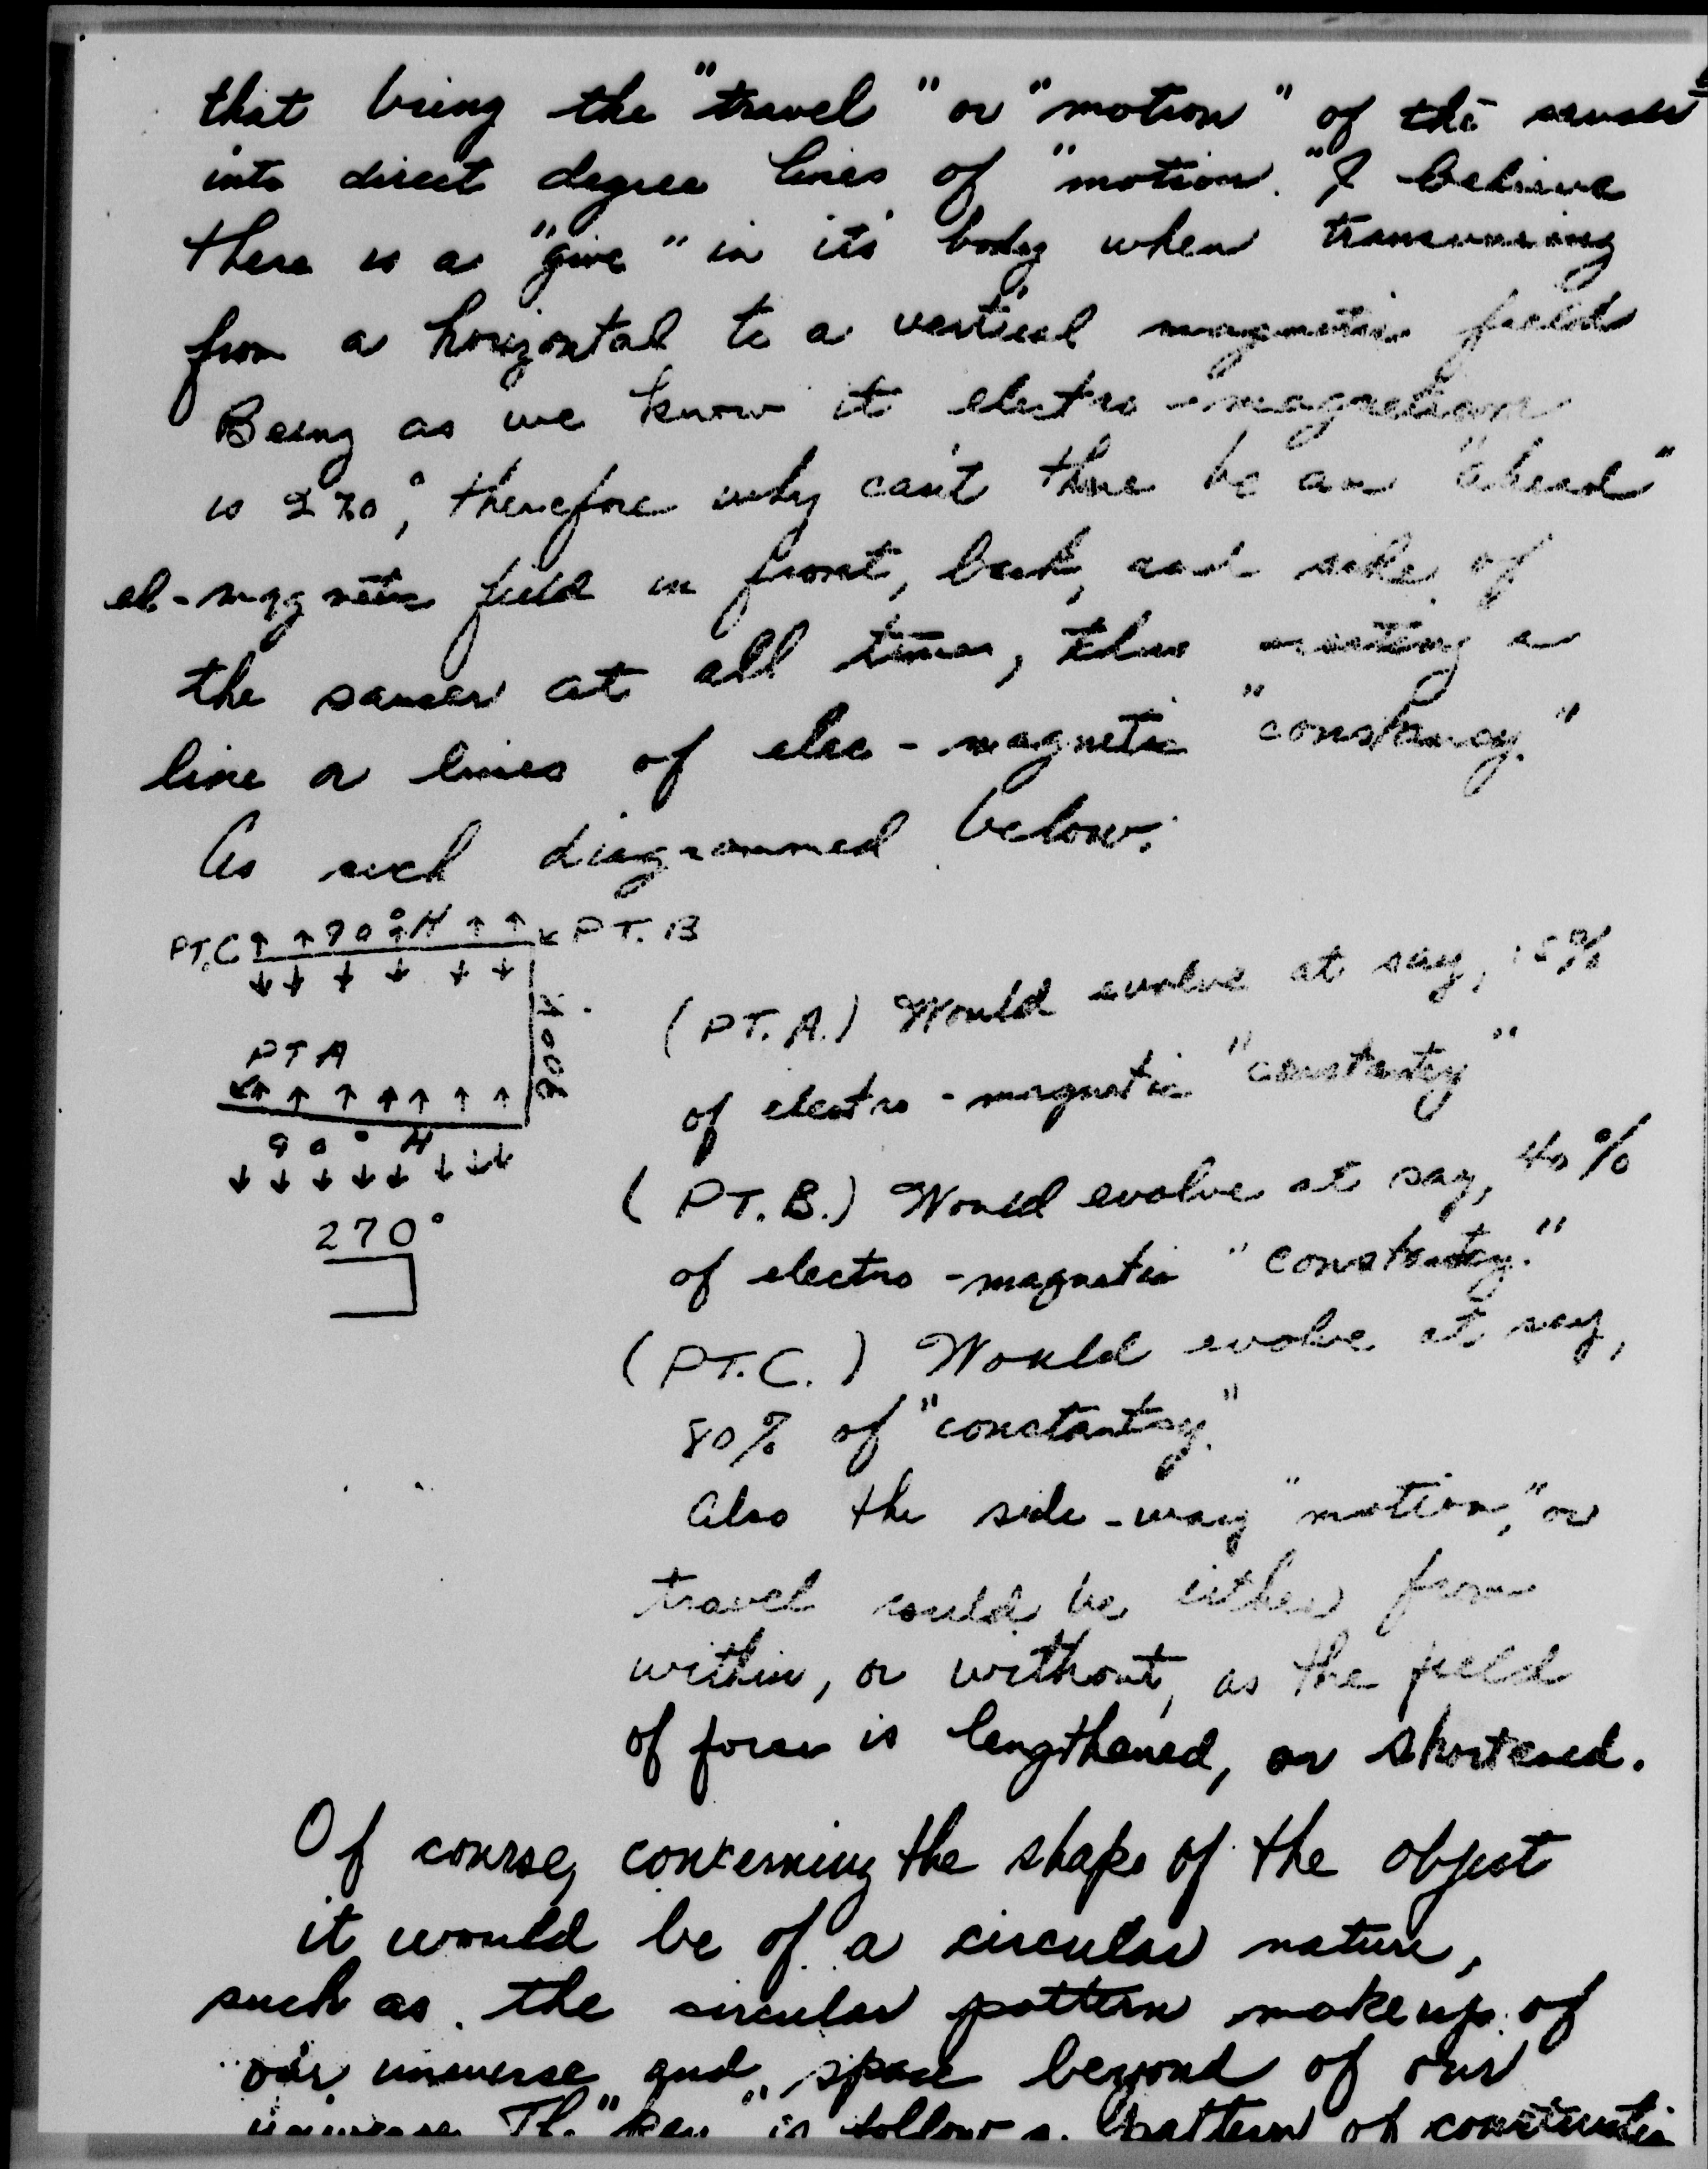 that being the "travel" or "motion" of the saucer
into direct degree lines of "motion." I believe
there is a "give" in its body when transversing
from a horizontal to a vertical magnetic field
Being as we know it electro-magnetism
is 270°, therefore why can't there be an "ahead"
el-magnetic field in front, back, and side of
the saucer at all times, thus creating a
line or lines of elec-magnetic "constancy."
As such diagrammed below:
PT.C 90° H PT. B
90° V
PT A
90° H
270°
(PT. A.) Would evolve at say,
of electro-magnetic "constantcy"
(PT. B.) Would evolve at say, 40%
of electro-magnetic "constantcy."
(PT. C.) Would evolve at say,
80% of "constantcy."
Also the side-way "motion," or
travel could be either from
within, or without, as the field
of force is lengthened, or shortened.
Of course, concerning the shape of the object
it would be of a circular nature,
such as the circular pattern makeup of
our universe and space beyond of our
universe. The "key" is follow a pattern of